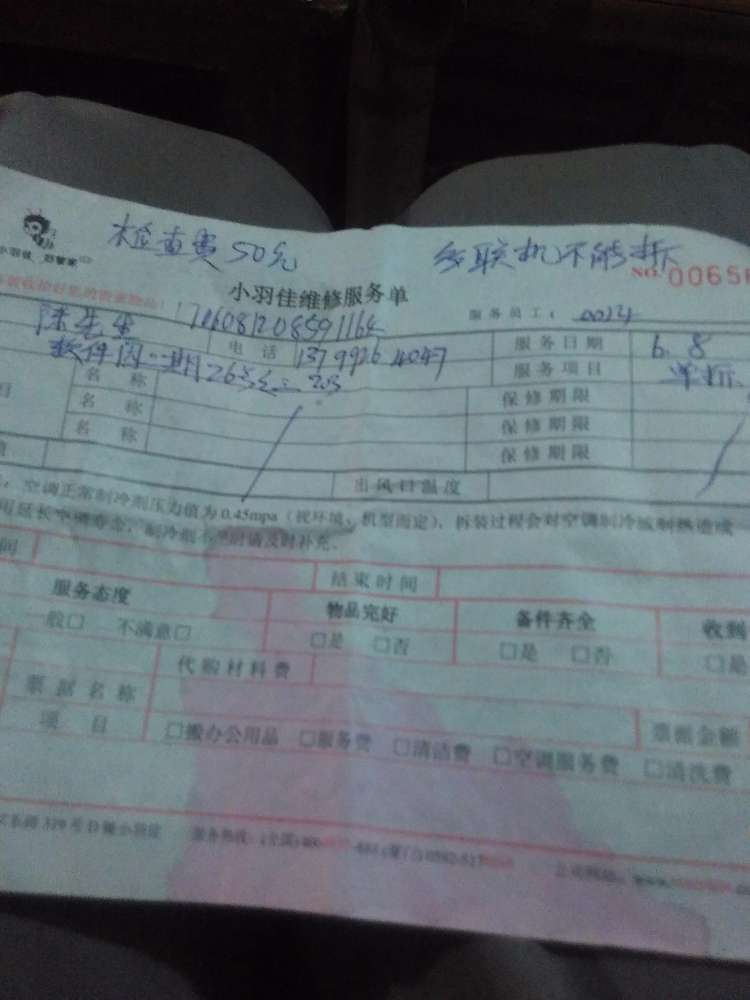 检查费50元
多联机不能拆
小羽佳 好管家
NO.00656
小羽佳维修服务单
服务员工: 0024
陈先生
电话 13799264047
服务日期 6.8
软件园一期26号
服务项目 单拆
名称
保修期限
名称
保修期限
名称
保修期限
出风口温度
空调正常制冷剂压力值为0.45mpa(视环境、机型而定),拆装过程会对空调制冷或制热造成一
延长空调寿命,制冷剂不足时请及时补充。
间
结束时间
服务态度
物品完好
备件齐全
收到
一般□ 不满意□
□是 □否
□是 □否
□是
代购材料费
票据名称
票据金额
项目
□搬办公用品 □服务费 □清洁费 □空调服务费 □清洗费